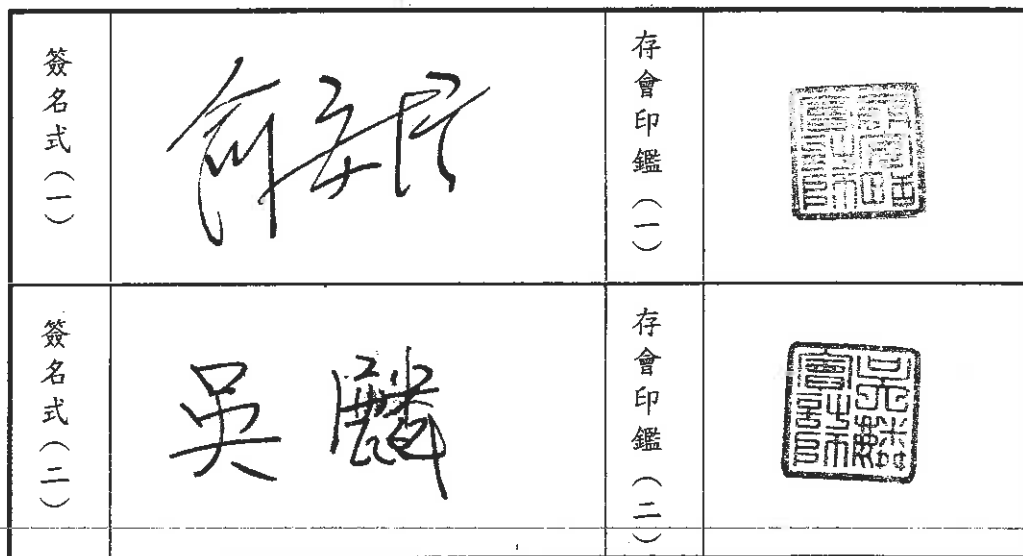 簽名式(一)
存會印鑑(一)
簽名式(二)
吳麟
存會印鑑(二)
吳麟
會計師